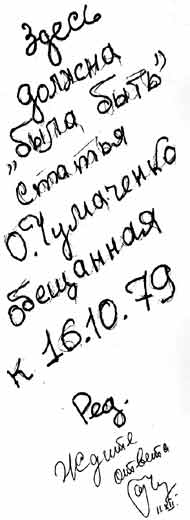 Здесь
должна
"была быть"
статья
О.Чумаченко
обещанная
к 16.10.79
Ред.
Ждите
ответа